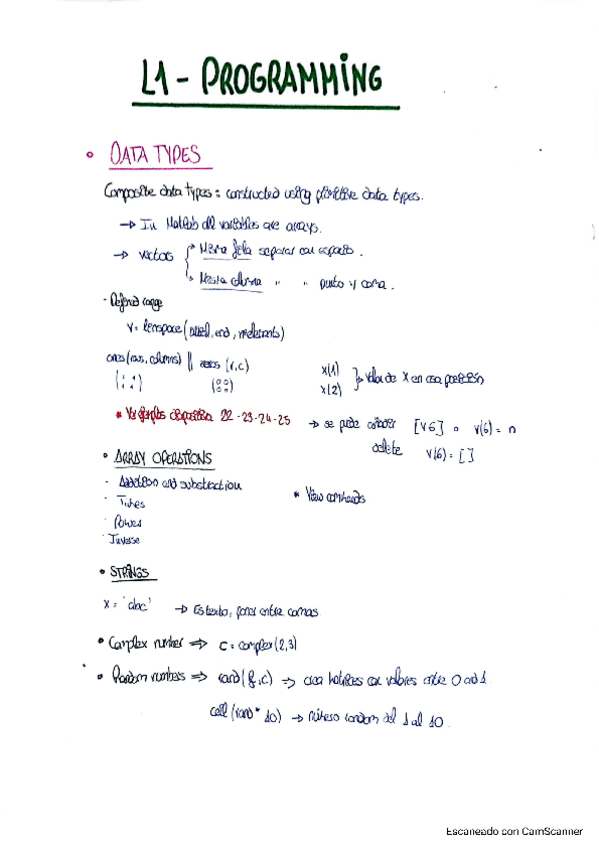 L1 - PROGRAMMING
• DATA TYPES
Composite data types: constructed using primitive data types.
→ In Matlab all variables are arrays.
→ vectors { → Misma fila separar con espacio.
→ Misma columna " " punto y coma.
· Defined range
v = linspace( , end, nelements)
ones(rows, columns) || zeros (r,c)
x(1)
x(2) } → valor de X en esa posición
* Ver ejemplos diapositiva 22-23-24-25 → se puede añadir [v 6] o v(6) = n
delete v(6) = []
• ARRAY OPERATIONS
· Addition and substraction
· Times * View commands
· Power
· Inverse
• STRINGS
x = 'abc' → Es texto, poner entre comas
• Complex number ⇒ c = complex(2,3)
• Random numbers ⇒ rand(f,c) ⇒ crea matrices con valores entre 0 and 1.
ceil (rand * 10) → número random del 1 al 10.
Escaneado con CamScanner